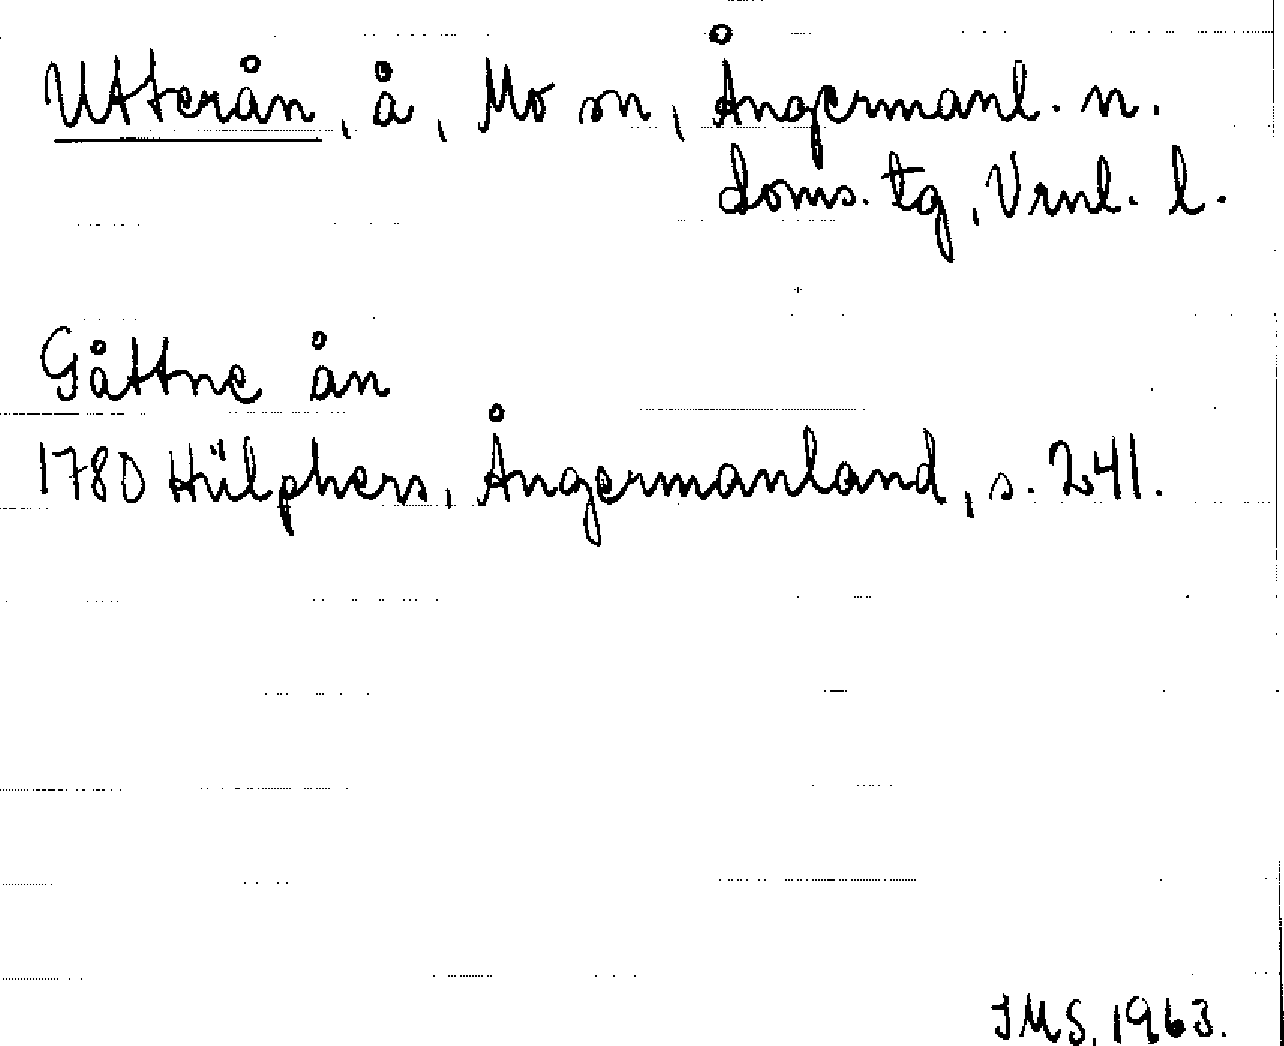 Utterån, å, Mo sn, Ångermanl. n.
doms. tg, Vrnl. l.
Gåttne ån
1780 Hülphers, Ångermanland, s. 241.
IMS. 1963.